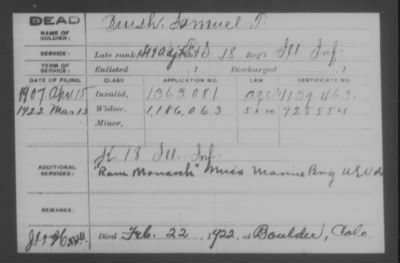 DEAD
NAME OF HOLDER: Samuel T.
SERVICE: Late rank 18 Reg't Ill Inf.
TERM OF SERVICE: Enlisted , 1 Discharged , 1
DATE OF FILING. CLASS APPLICATION NO. LAW CERTIFICATE NO.
1907 Apr 15 Invalid, 1363.081 1139.463.
1922 Mar 13 Widow, 1,186,063 925554
Minor,
ADDITIONAL SERVICES: K 18 Ill. Inf.
"Ram Monarch" Miss Marine Brig U.S. Vols
REMARKS:
Died Feb. 22, 1922, at Boulder, Colo.